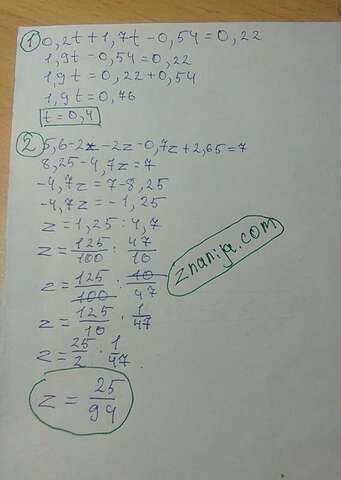 1 0,2t+1,7t-0,54=0,22
1,9t-0,54=0,22
1,9t=0,22+0,54
1,9t=0,76
t=0,4
2 5,6-2x-2z-0,7z+2,65=7
8,25-4,7z=7
-4,7z=7-8,25
-4,7z=-1,25
z=1,25:4,7
z=125/100:47/10
z=125/100:10/47
z=125/10·1/47
z=25/2·1/47
z=25/94
znanija.com